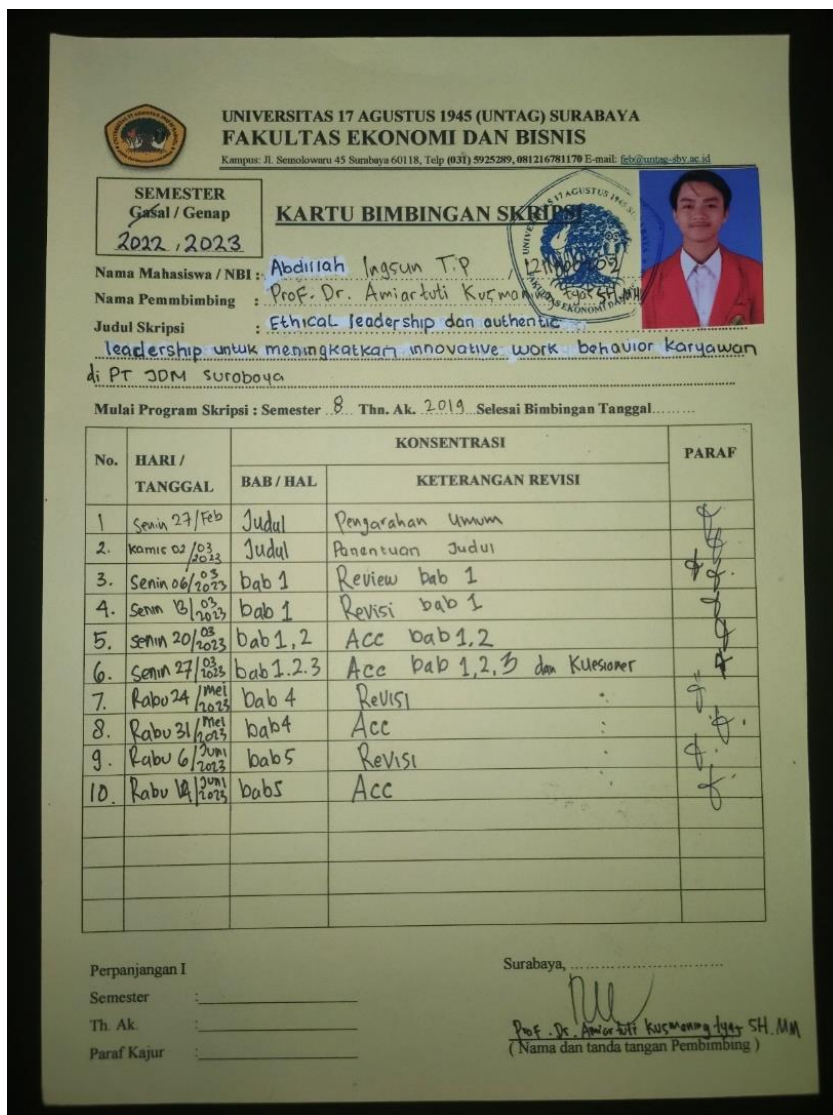 UNIVERSITAS 17 AGUSTUS 1945 (UNTAG) SURABAYA
FAKULTAS EKONOMI DAN BISNIS
Kampus: Jl. Semolowaru 45 Surabaya 60118, Telp (031) 5925289, 081216781170 E-mail: feb@untag-sby.ac.id
SEMESTER
Gasal / Genap
2022, 2023
KARTU BIMBINGAN SKRIPSI
Nama Mahasiswa / NBI : Abdillah Ingsun T.P /
Nama Pemmbimbing : Prof. Dr. Amiartuti Kusmaningtyas SH.MM
Judul Skripsi : Ethical leadership dan authentic
leadership untuk meningkatkan innovative work behavior karyawan
di PT JDM Suroboya
Mulai Program Skripsi : Semester 8 Thn. Ak. 2019 Selesai Bimbingan Tanggal.........
No. HARI / TANGGAL KONSENTRASI PARAF
BAB / HAL KETERANGAN REVISI
1 Senin 27/Feb Judul Pengarahan Umum
2. Kamis 02/03 2023 Judul Penentuan Judul
3. Senin 06/03 2023 bab 1 Review bab 1
4. Senin 13/03 2023 bab 1 Revisi bab 1
5. Senin 20/03 2023 bab 1,2 Acc bab 1,2
6. Senin 27/03 2023 bab 1.2.3 Acc bab 1,2,3 dan Kuesioner
7. Rabu 24/Mei 2023 bab 4 Revisi
8. Rabu 31/Mei 2023 bab 4 Acc
9. Rabu 6/Juni 2023 bab 5 Revisi
10. Rabu /Juni 2023 bab 5 Acc
Perpanjangan I
Semester :
Th. Ak. :
Paraf Kajur :
Surabaya, ..............................
Prof. Dr. Amiartuti Kusmaningtyas SH. MM
( Nama dan tanda tangan Pembimbing )